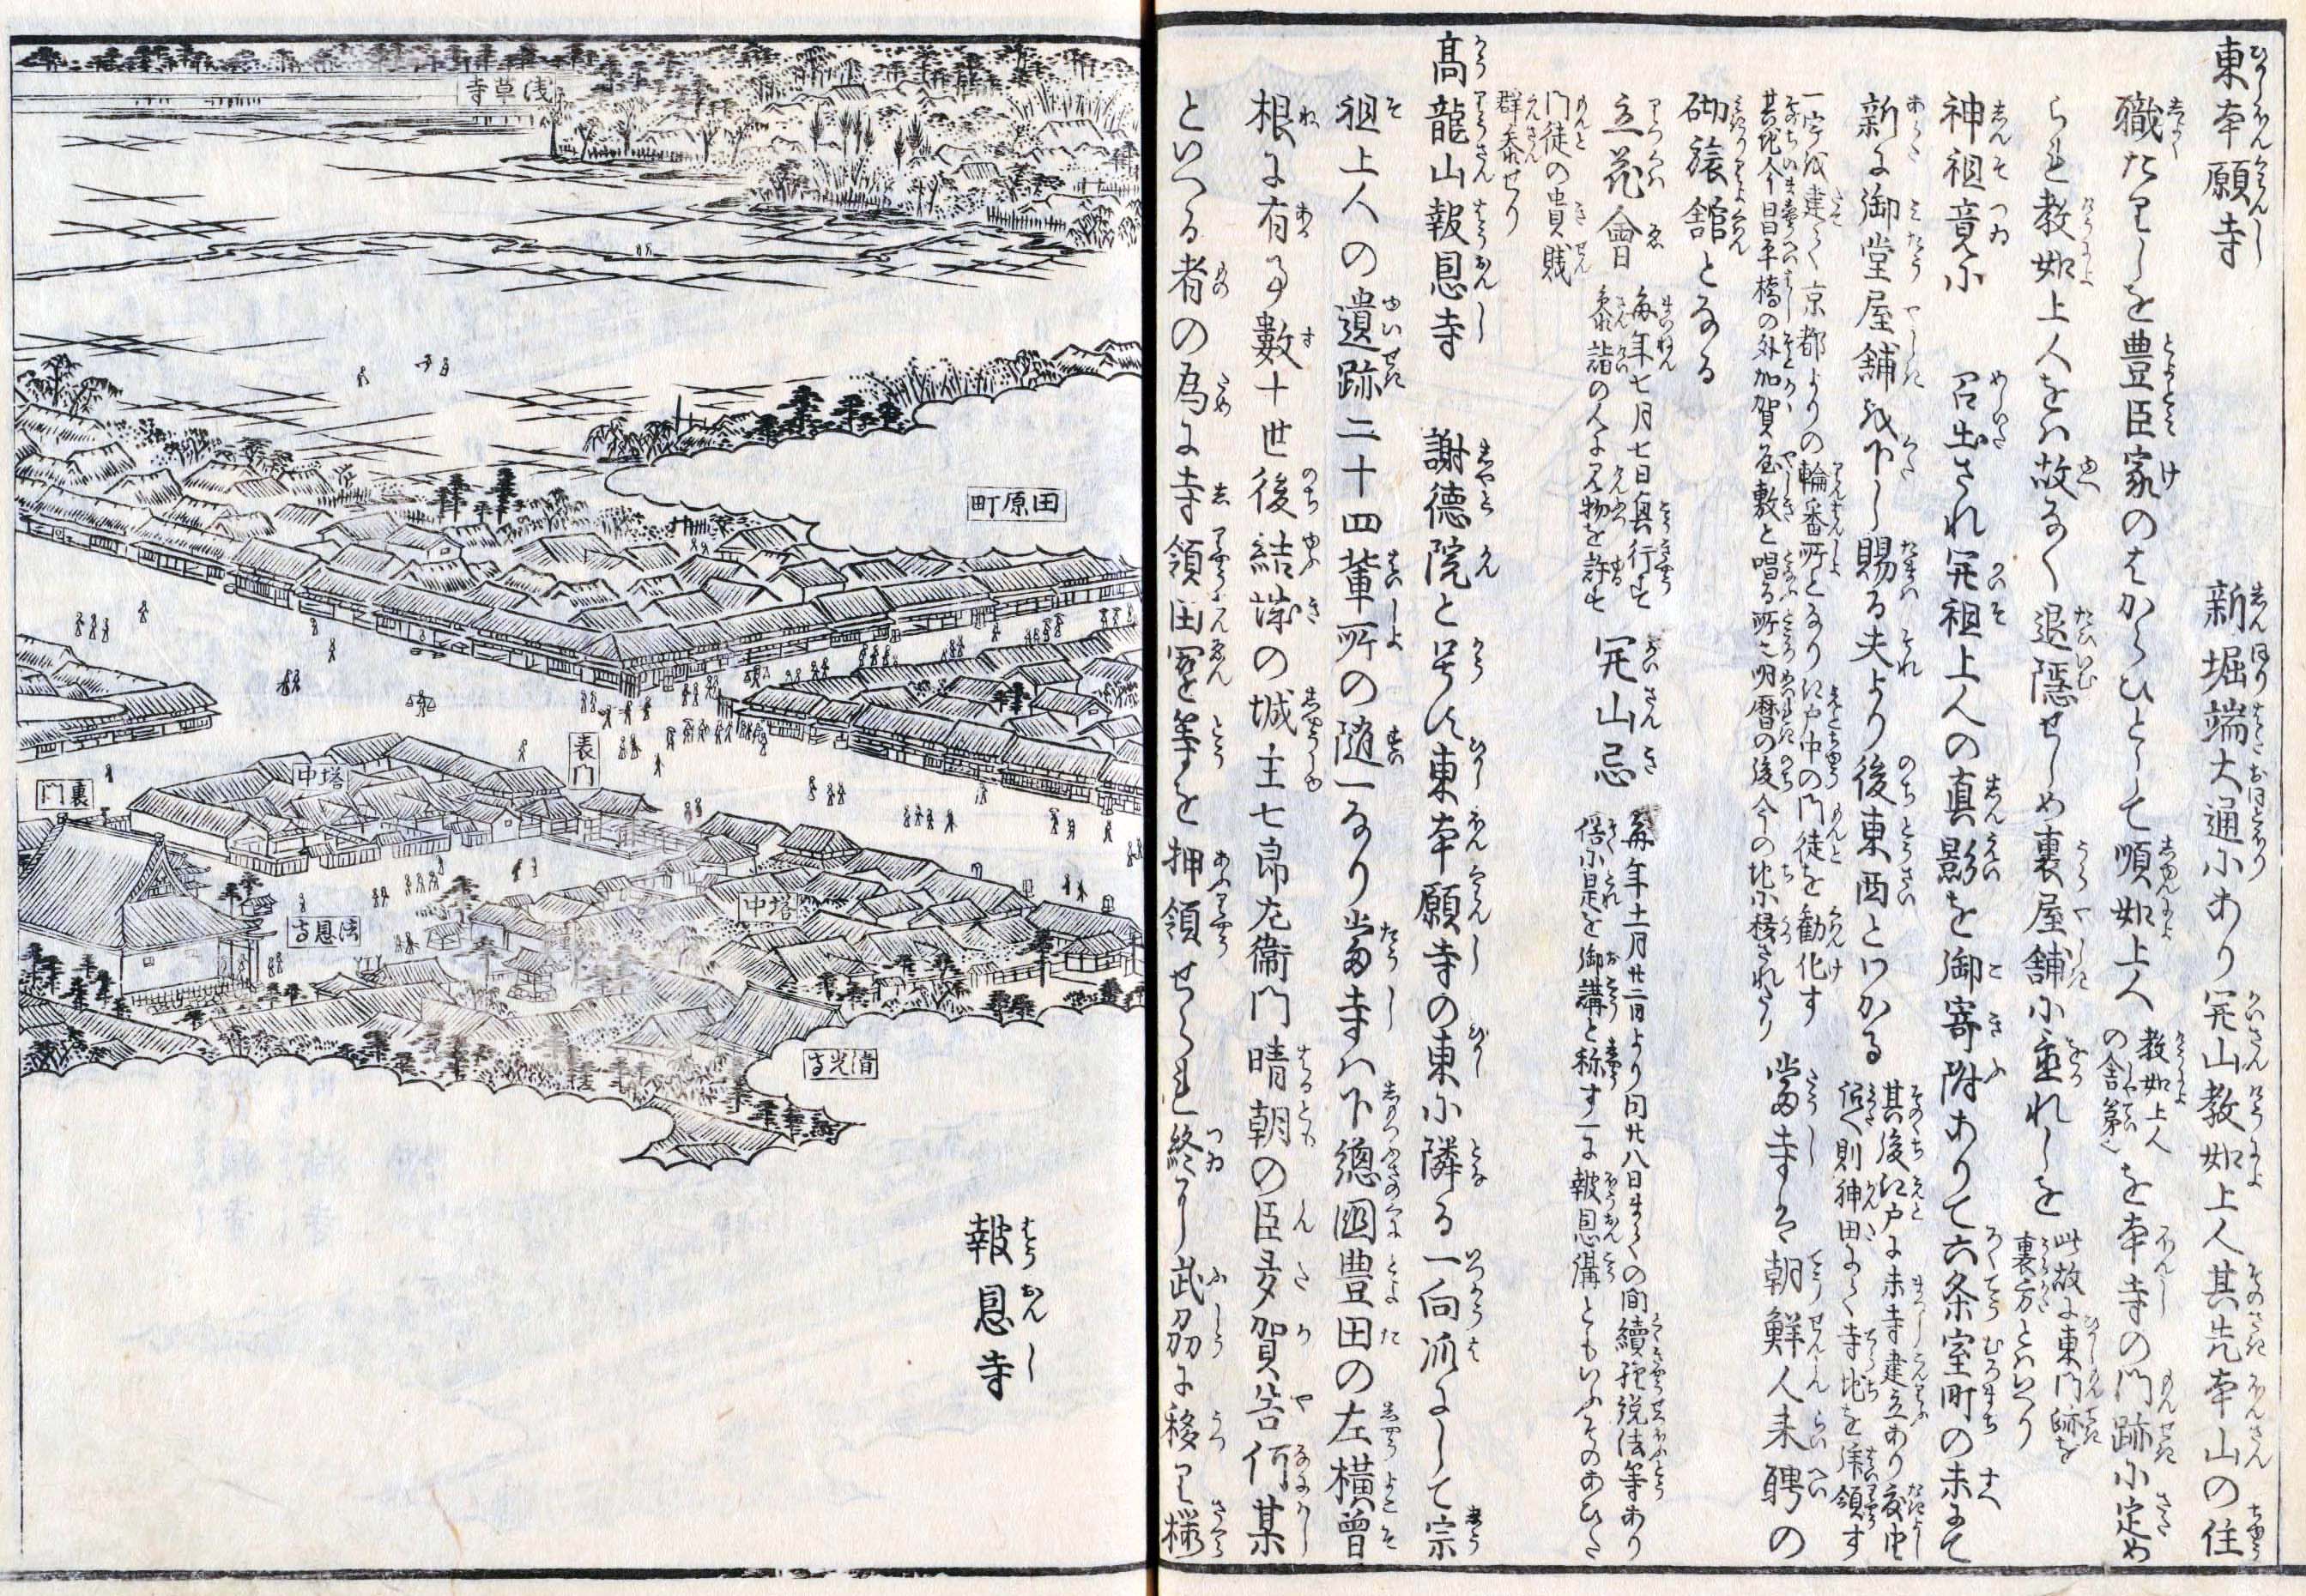 東本願寺　新堀端大通にあり開山教如上人其先本山の住
職たりしを豊臣家のはからひとして順如上人 教如上人の舎弟 を本寺の門跡に定め
られ教如上人をハ故なく退隠せしめ裏屋舗に並れしを 此故に東門跡を裏方とハいへり
神祖竟に　召出され開祖上人の真影を御寄附ありて六条室町の末にて
新に御堂屋舗を下し賜る夫より後東西とわかる 其後江戸に末寺建立あり 則神田にて寺地を拝領す
一宇を建て京都よりの輪番所となり江戸中の門徒を勧化す
其地今昌平橋の外加賀屋敷と唱る所也明暦の後今の地に移されたり
當寺を朝鮮人来聘の
砌旅舘となる
立花會 毎年七月七日興行す 参詣の人に見物を許せ
開山忌 毎年十一月廿一日より同廿八日までの間 説法等あり
俗に是を御講と称す一に報恩講ともいふそのあひた
門徒の貴賎
群参せり
高龍山報恩寺　謝徳院と号す東本願寺の東に隣る一向派にして宗
祖上人の遺跡二十四輩所の随一なり當寺ハ下總國豊田の左横曽
根に有る事數十世後結城の城主七郎左衛門晴朝の臣多賀谷何某
といへる者の為に寺領田園等を押領せられ終に武刕に移り桜
浅草寺
田原町
表門
裏門
中塔
報恩寺
中塔
清光寺
報恩寺